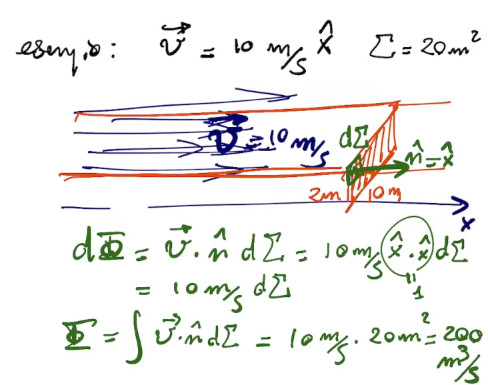 esempio: v⃗ = 10 m/s x̂ Σ = 20m²
dΣ
v⃗ = 10 m/s
n̂ = x̂
2m 10m
x
dΦ = v⃗ · n̂ dΣ = 10 m/s x̂ · x̂ dΣ
= 10 m/s dΣ
"
1
Φ = ∫ v⃗ · n̂ dΣ = 10 m/s · 20m² = 200 m³/s